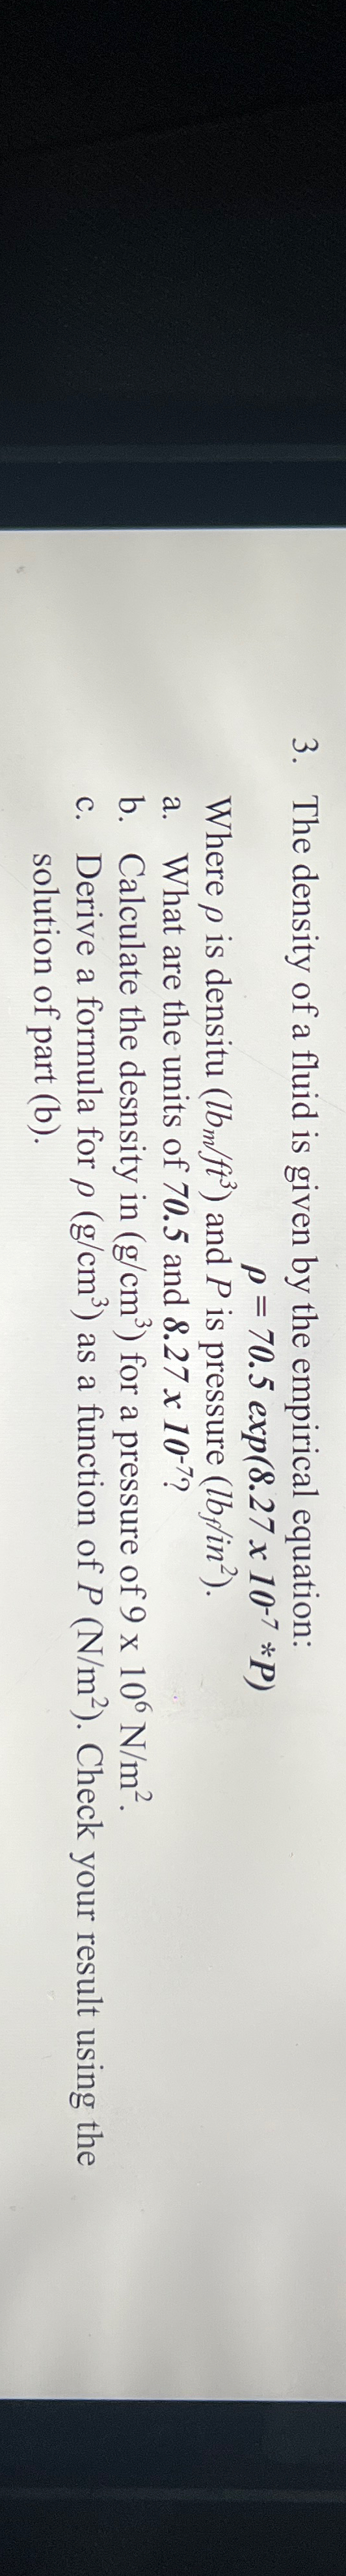 3. The density of a fluid is given by the empirical equation:
ρ = 70.5 exp(8.27 x 10⁻⁷ * P)
Where ρ is densitu (lbₘ/ft³) and P is pressure (lb_f/in²).
a. What are the units of 70.5 and 8.27 x 10⁻⁷?
b. Calculate the desnsity in (g/cm³) for a pressure of 9 x 10⁶ N/m².
c. Derive a formula for ρ (g/cm³) as a function of P (N/m²). Check your result using the
solution of part (b).